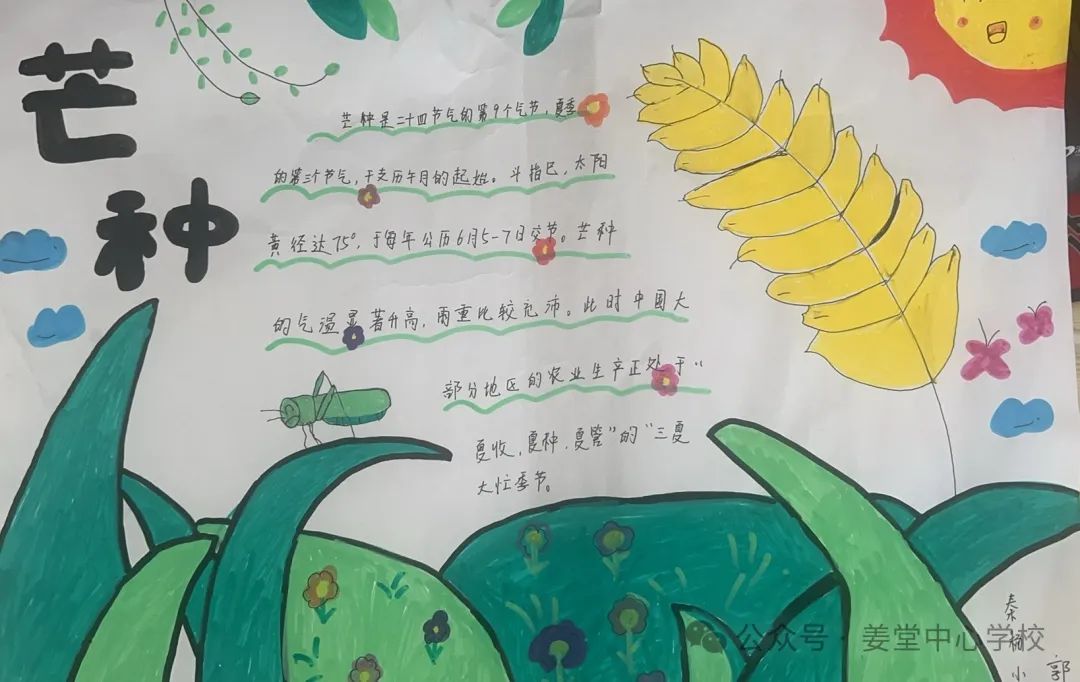 芒种
芒种是二十四节气的第9个气节，夏季
的第三个节气，干支历午月的起始。斗指巳，太阳
黄经达75°，于每年公历6月5-7日交节。芒种
的气温显著升高，雨量比较充沛。此时中国大
部分地区的农业生产正处于“
夏收，夏种，夏管”的“三夏
大忙季节。
公众号·姜堂中心学校
秦
小 郭